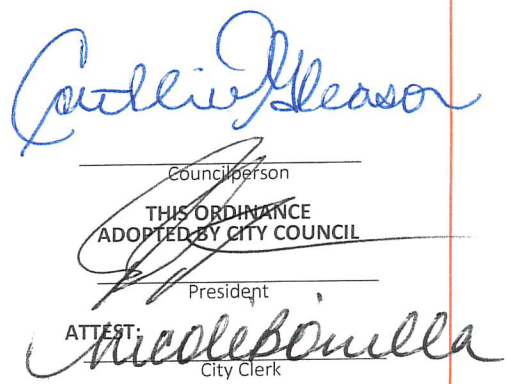 Caitlin Gleason
Councilperson
THIS ORDINANCE
ADOPTED BY CITY COUNCIL
President
ATTEST:
Nicole Bonilla
City Clerk